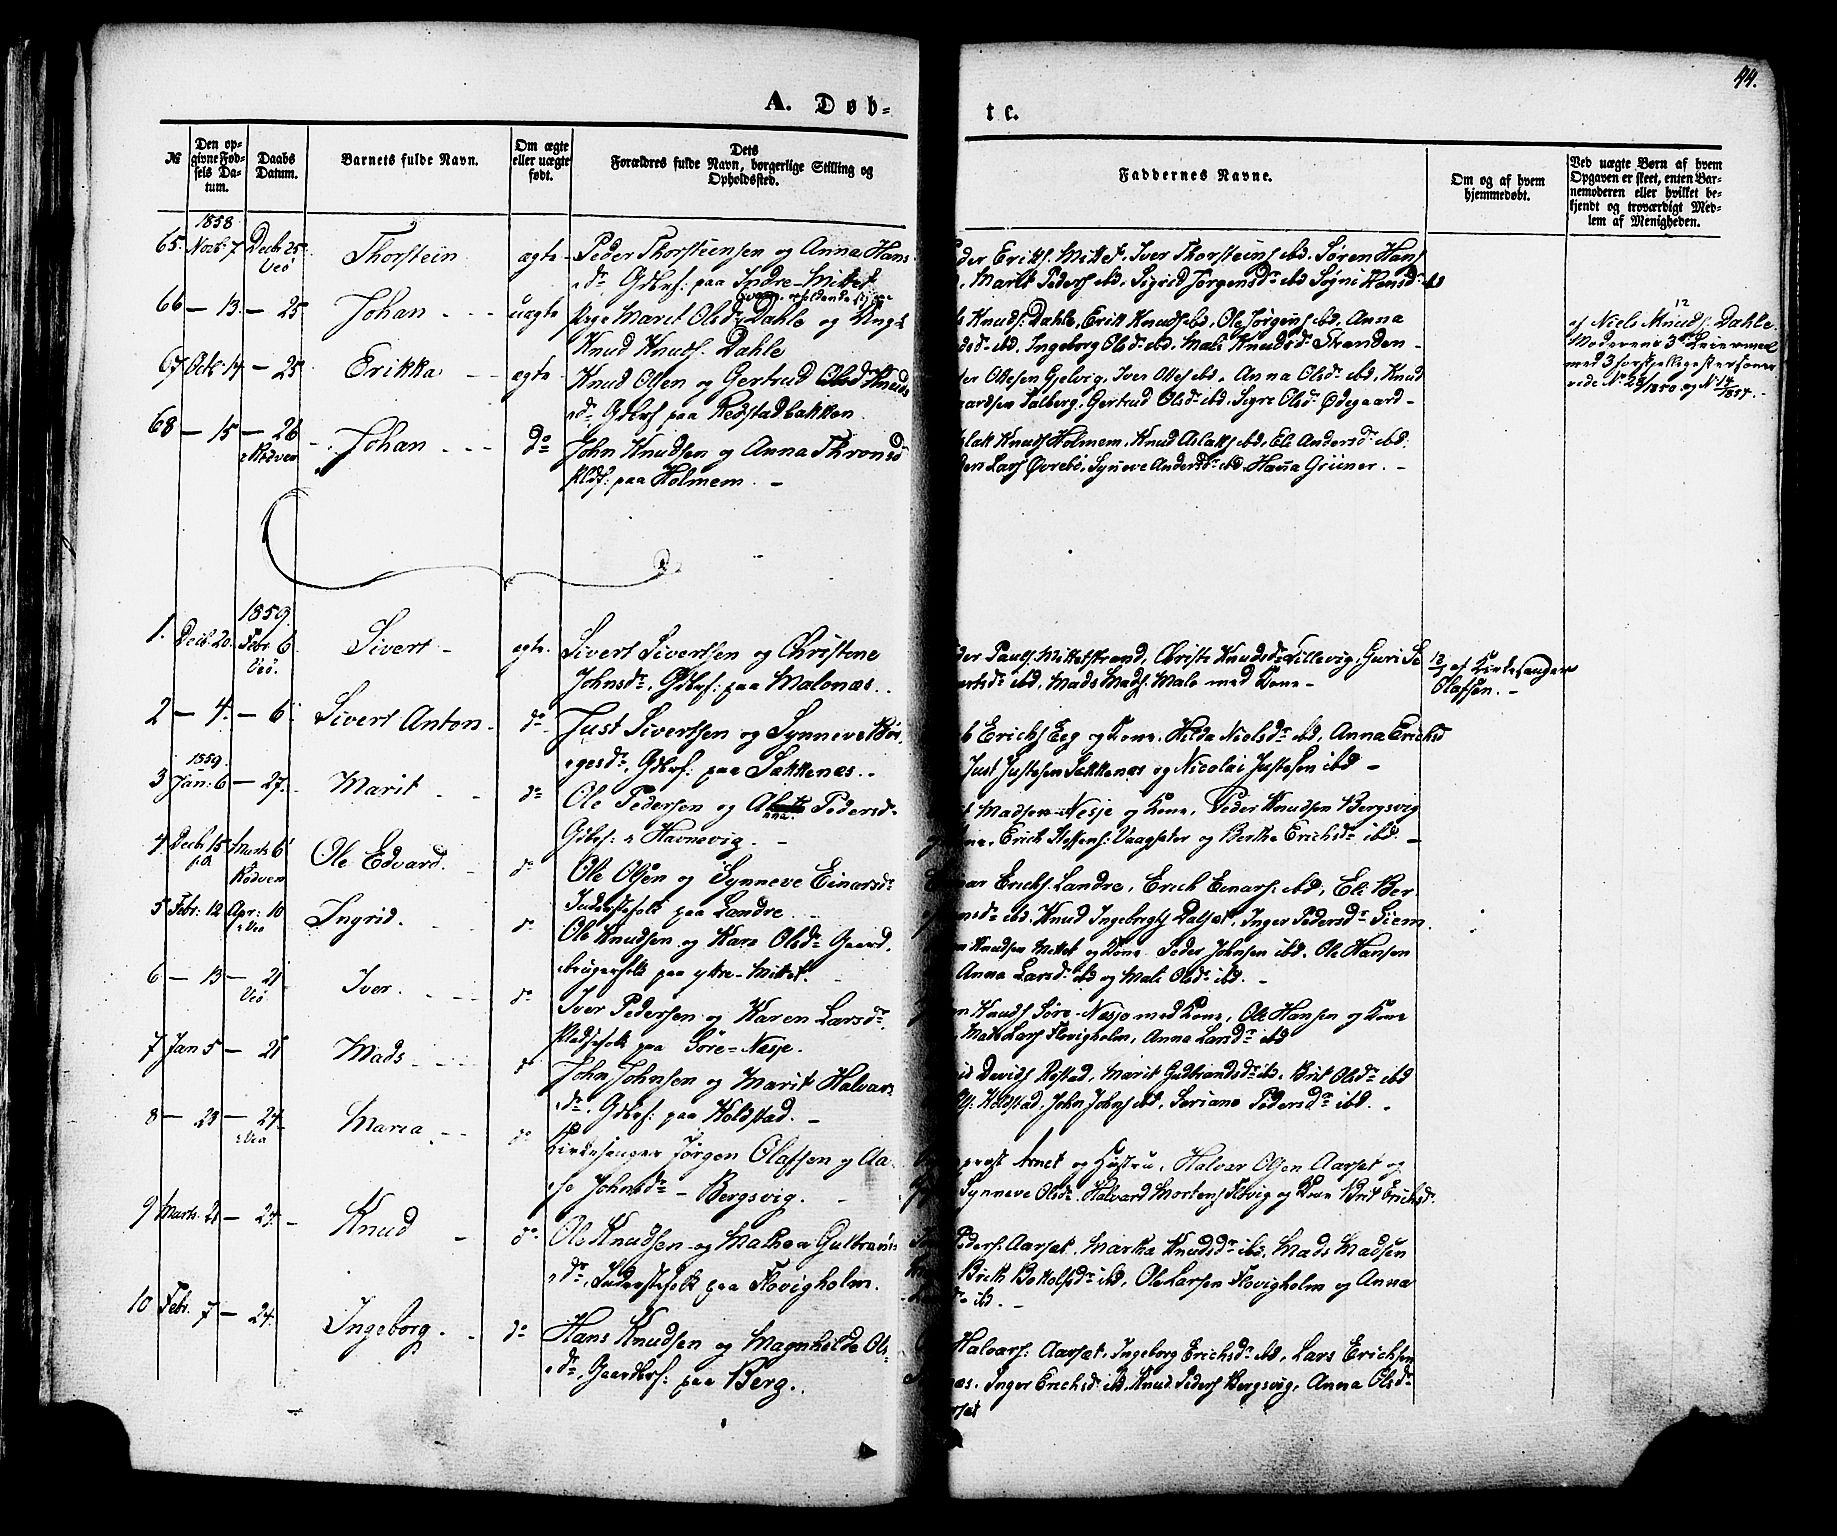 44.
A. Døb-
te.
№
Den op-
givne Fød-
sels Da-
tum.
Daabs
Datum.
Barnets fulde Navn.
Om ægte
eller uægte
født.
Dets
Forældres fulde Navn, borgerlige Stilling og
Opholdssted.
Faddernes Navne.
Om og af hvem
hjemmedøbt.
Ved uægte Børn af hvem
Opgaven er skeet, enten Bar-
nemoderen eller hvilket be-
kjendt og troværdigt Med-
lem af Menigheden.
1858
65. Novbr 7 Decbr 25 Thorstein ægte Peder Thorsteinsen og Anna Hans
Veö
dr Gdbrf: paa Indre-Mittet
der Eriks. Mittet, Iver Thorsteins ibd. Søren Hans
, Marit Peders ibd, Sigrid Jørgensdr ibd Søgni Hansdr ibd
66 — 13. — 25 Johan uægte Pige Marit Olsdr Dahle og Ungk
Knud Knuds. Dahle
Knuds. Dahle, Erik Knuds ibd, Ole Jørgens ibd, Anna
dr ibd. Ingeborg Olsdr ibd. Mali Knudsdr Stranden —
af Niels Knuds. Dahle.
Moderens 3die Leiermaal
med 3 forskjellige Personer
67 Octb 14 — 25 Erikka ægte Knud Olsen og Gertrud Knuds
dr Gdbrf paa Redstadbakken.
Ottesen Gjelvig, Iver Ottes ibd, Anna Olsdr ibd, Knud
Salberg, Gertrud Olsdr ibd, Sigre Olsdr Ødegaard —
68 — 15 — 26 Johan do John Knudsen og Anna Thronsd
i Rödven
Pldsf: paa Holmem. —
lak Knuds Holmem, Knud Aslaks ibd, Eli Andersdr ibd.
Lars Øvrebö, Synneve Andersdr ibd. Hanna Grüner. —
1859.
1. Decb. 20. Febr 6 Sivert ægte Sivert Sivertsen og Christene
Veö.
Johnsdr, Gdbrf: paa Malonæs.
der Pauls. Mittetstrand, Christi Knudsdr Sillevig, Guri Si
dr ibd, Mads Mads. Malo med Kone —
af Kirkesanger
Olafsen. —
2 — 4. — 6 Sivert Anton do Just Sivertsen og Synneve Bör
gesdr, Gdbrf: paa Sækkenæs.
Erichs Eeg og Kone. Hilda Nielsdr ibd, Anna Erichsd
Just Justesen Sækkenæs og Nicolai Justesen ibd —
1859.
3 Jan: 6 — 27. Marit do Ole Pedersen og Pedersdr
Gdbrf: i Havnevig. —
Madsen Nesje og Kone, Peder Knudsen Bergsvig
Erick Steffens: Vaagsæter og Berthe Erichsdr ibd. —
4. Decb 15 Marts 6 Ole Edvard. do Ole Olsen og Synneve Einarsdr
Rödven
Inderstefolk paa Landre.
Erichs. Landre, Erich Einars: ibd, Eli Ber
dr ibd. Knud Ingebrigts Dalset, Inger Pedersdr Siem.
5 Febr: 12 Apr: 10 Ingrid. do Ole Knudsen og Kare Olsdr Gaard
i Veö
brugerfolk paa ytre-Mittet.
Knudsen Mittet og Kone. Peder Johnsen ibd. Ole Hansen
Anna Larsdr ibd og Mali Olsdr ibd. —
6 — 13 — 21 Iver. do Iver Pedersen og Karen Larsdr.
Veö
Pladsefolk paa Søre-Nesje.
Knuds Søre-Nesje med Kone, Ole Hansen og Kone
Mats Lars Flovigholm, Anna Larsdr ibd
7 Jan 5 — 21 Mads do John Johnsen og Marit Halvars
dr, Gdbrf: paa Koldstad. —
Davids Restad, Marit Gudbrandsdr ibd. Brit Olsdr ibd
Koldstad. John Johns ibd, Seriane Pedersdr ibd.
8 — 23 — 24 Maria do Kirkesanger Jørgen Olafsen og Aa
i Veö
se Johnsdr — Bergsvig. —
prost Arnet og Hustru, Halvar Olsen Aarset og
Synneve Olsdr. Halvard Mortens Flovig og Kone Brit Erichsdr.
9 Marts. 21 — 24. Knud do Ole Knudsen og Mathea Gulbrans
dr, Inderstefolk paa Flovigholm.
Peders. Aarset, Martha Knudsdr ibd, Mads Madsen
Brith Bottolfsdr ibd, Ole Larsen Flovigholm og Anna
dr ibd. —
10 Febr. 7 — 24. Ingeborg. do Hans Knudsen og Magnhilde Ols
dr, Gaardbrf: paa Berg.
Halvars: Aarset, Ingeborg Erichsdr ibd, Lars Erichsen
Inger Erichsdr ibd, Knud Peders Bergsvig, Anna Olsdr